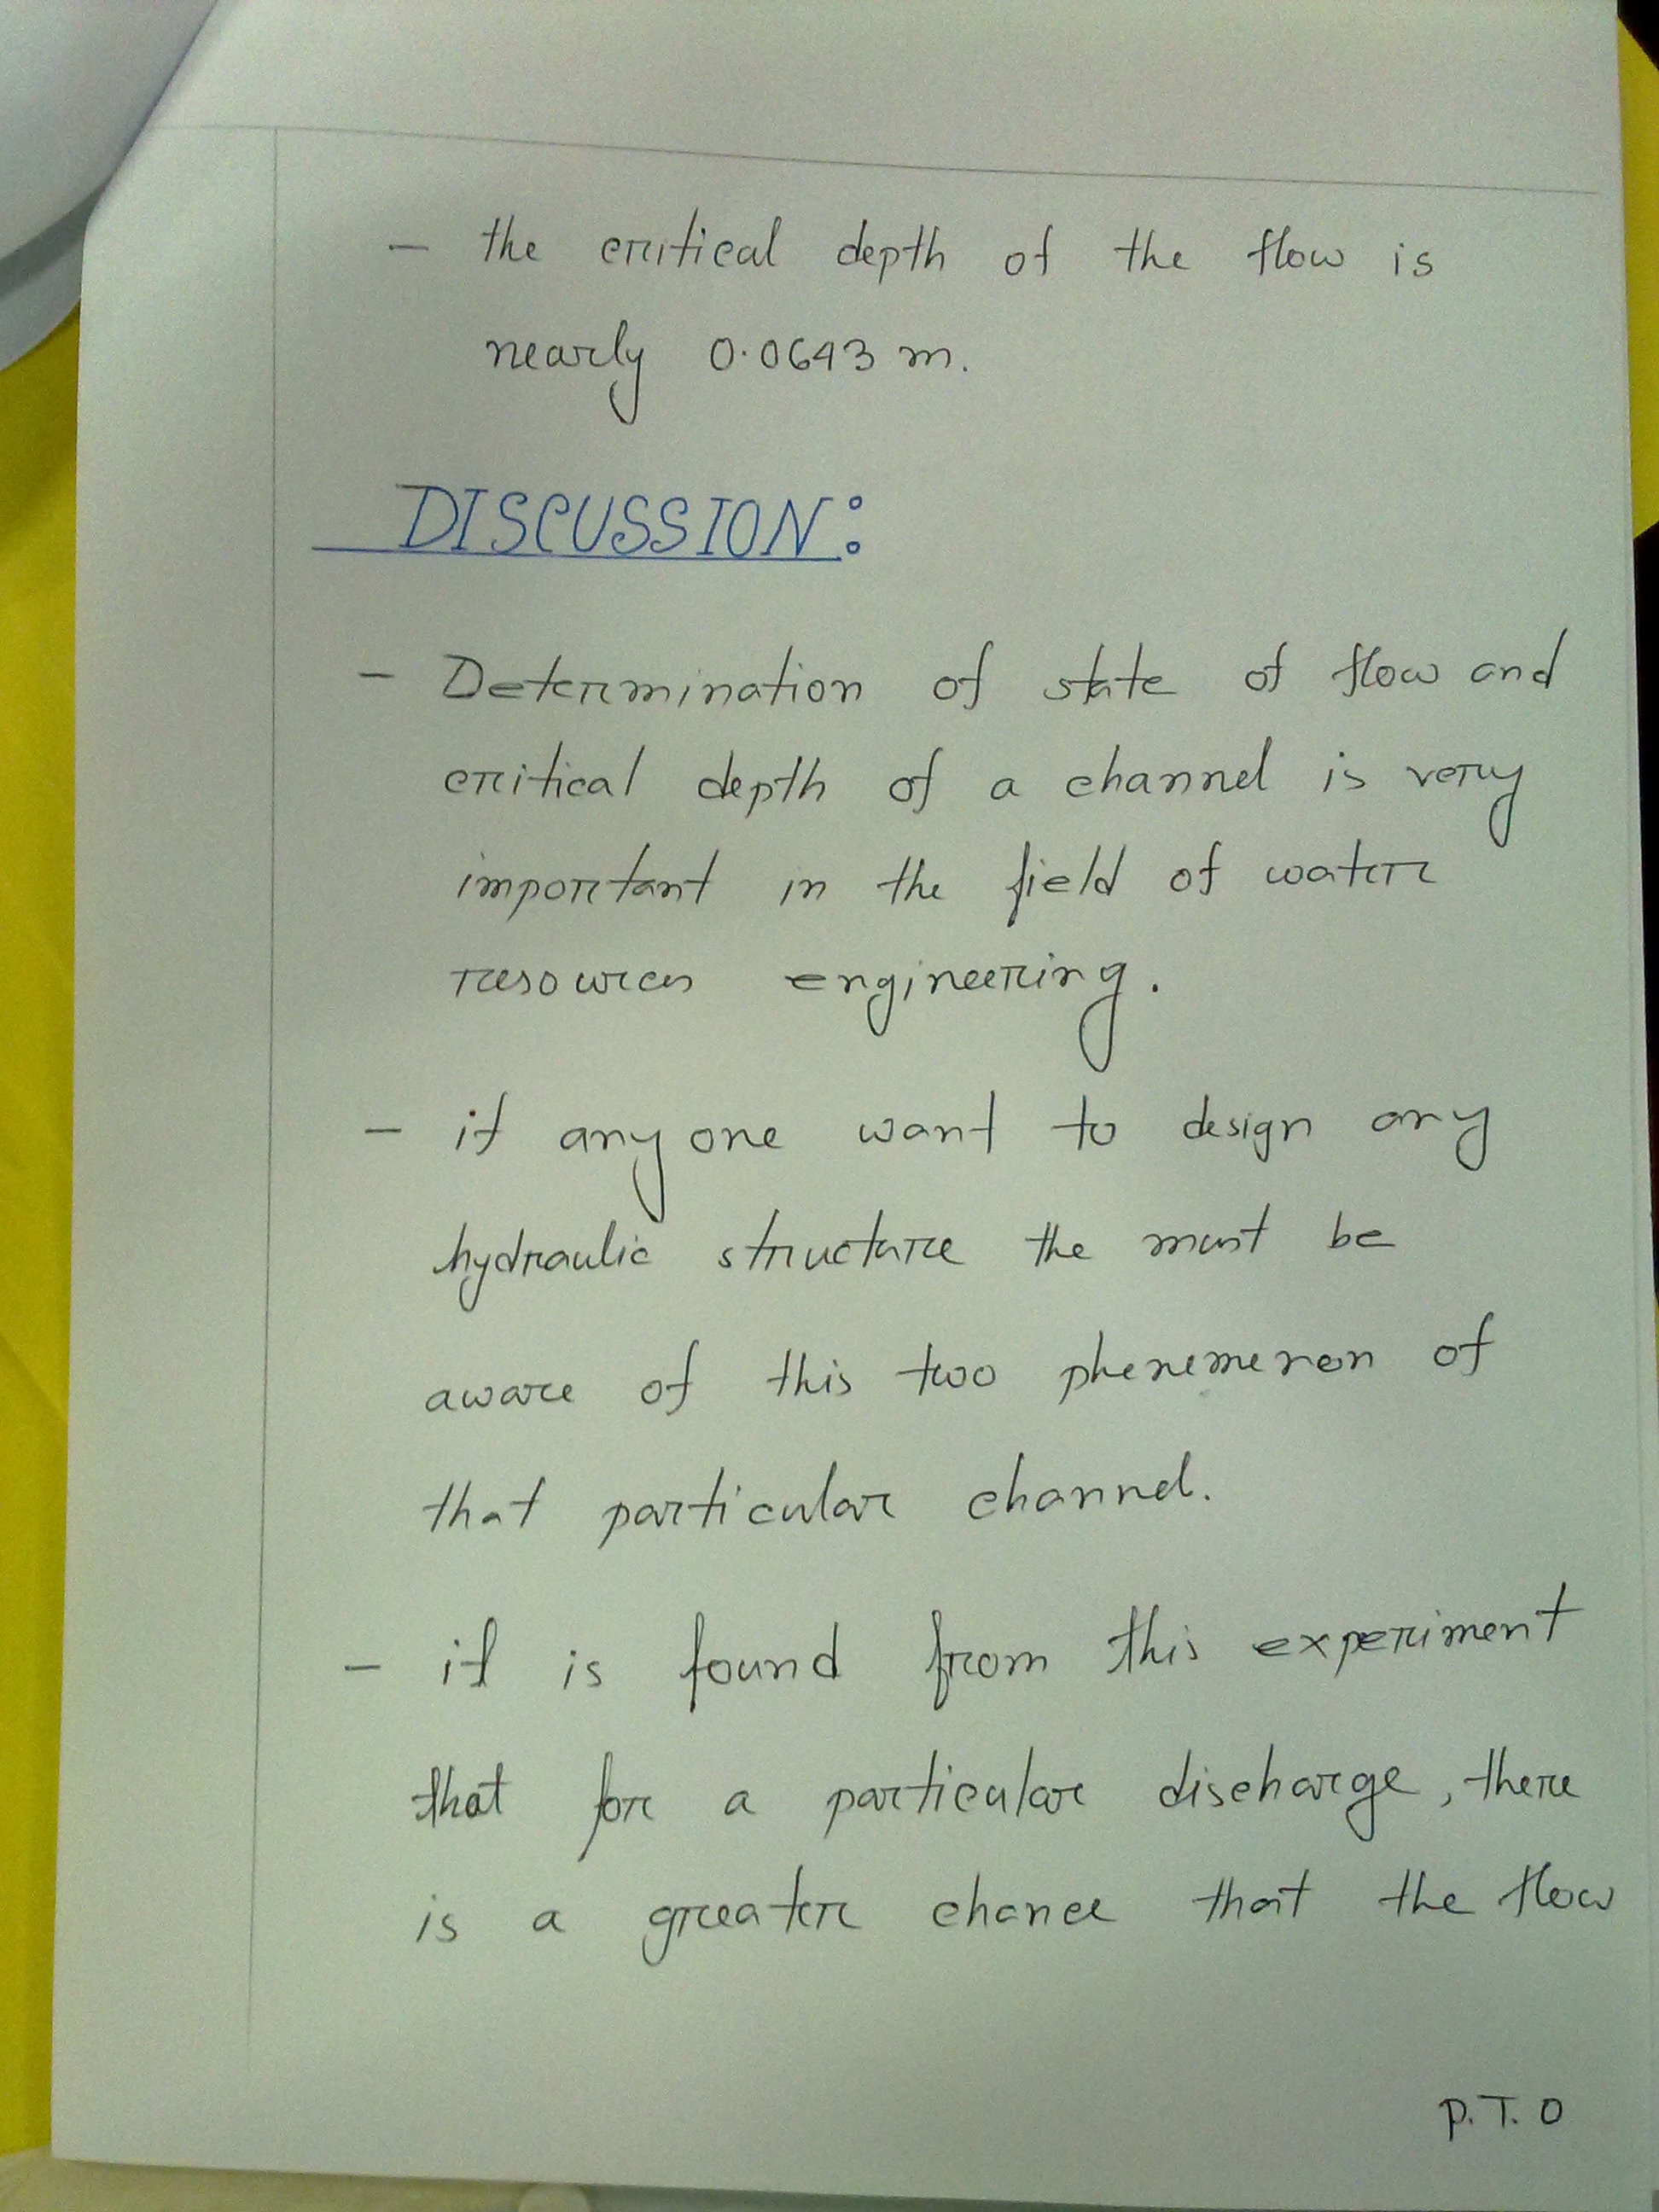 - the critical depth of the flow is
nearly 0.0643 m.
DISCUSSION:
- Determination of state of flow and
critical depth of a channel is very
important in the field of water
resources engineering.
- if any one want to design any
hydraulic structure the must be
aware of this two phenemenon of
that particular channel.
- it is found from this experiment
that for a particular discharge, there
is a greater chance that the flow
P.T.O